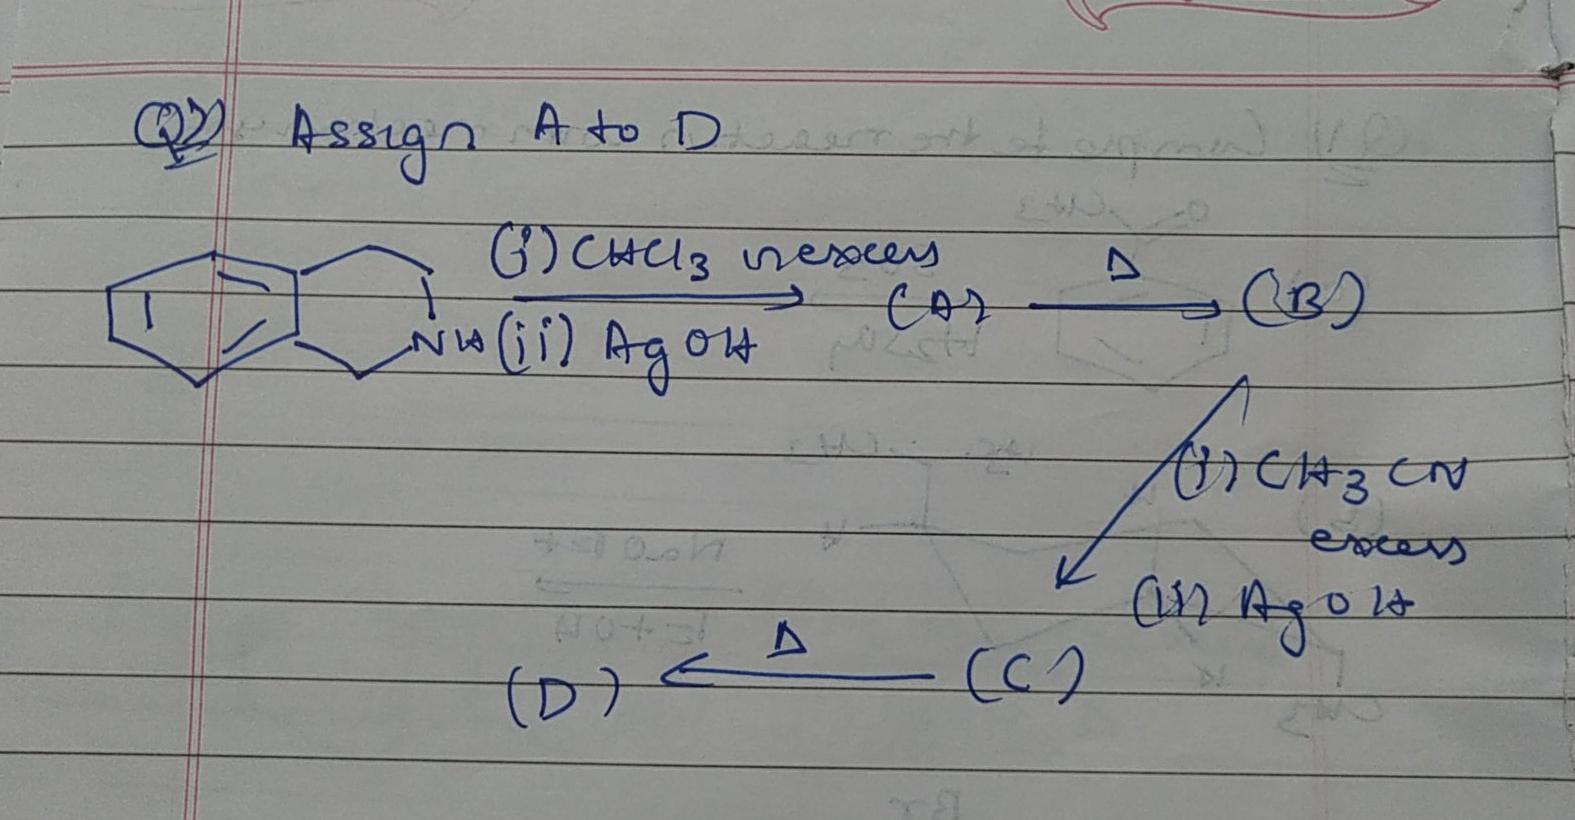 Q2) Assign A to D
(i) CHCl3 inexcess
NH (ii) AgOH (A) Δ (B)
(i) CH3 CN
excess
(ii) AgOH
(D) Δ (C)